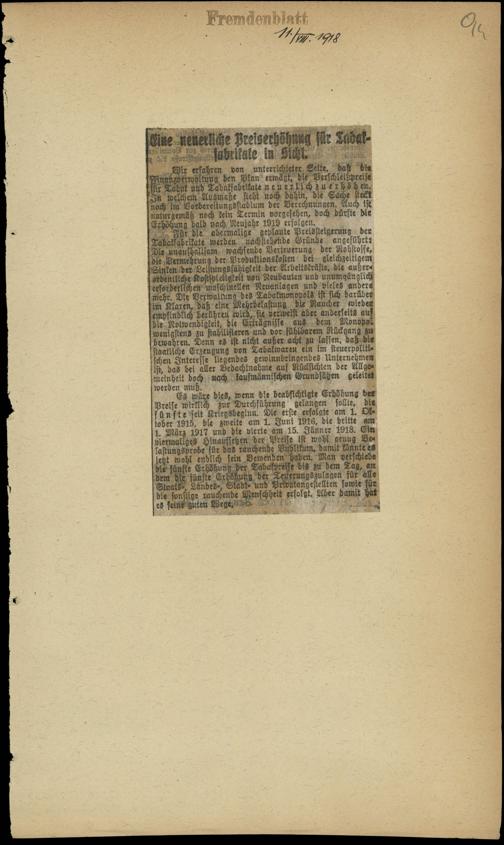 Fremdenblatt
11./VIII. 1918
Eine neuerliche Preiserhöhung für Tabak-
fabrikate in Sicht.
Wir erfahren von unterrichteter Seite, daß die
Finanzverwaltung den Plan erwägt, die Verschleißpreise
für Tabak und Tabakfabrikate neuerlich zu erhöhen.
In welchem Ausmaße steht noch dahin, die Sache steckt
noch im Vorbereitungsstadium der Berechnungen. Auch ist
naturgemäß noch kein Termin vorgesehen, doch dürfte die
Erhöhung bald nach Neujahr 1919 erfolgen.
Für die abermalige geplante Preissteigerung der
Tabakfabrikate werden nachstehende Gründe angeführt:
Die unaufhaltsam wachsende Verteuerung der Rohstoffe,
die Vermehrung der Produktionskosten bei gleichzeitigem
Sinken der Leistungsfähigkeit der Arbeitskräfte, die außer-
ordentliche Kostspieligkeit von Neubauten und unumgänglich
erforderlichen maschinellen Neuanlagen und vieles andere
mehr. Die Verwaltung des Tabakmonopols ist sich darüber
im klaren, daß eine Mehrbelastung die Raucher wieder
empfindlich berühren wird, sie verweist aber anderseits auf
die Notwendigkeit, die Erträgnisse aus dem Monopol
wenigstens zu stabilisieren und vor fühlbarem Rückgang zu
bewahren. Denn es ist nicht außer acht zu lassen, daß die
staatliche Erzeugung von Tabakwaren ein im steuerpoliti-
schen Interesse liegendes gewinnbringendes Unternehmen
ist, das bei aller Bedachtnahme auf Rücksichten der Allge-
meinheit doch nach kaufmännischen Grundsätzen geleitet
werden muß.
Es wäre dies, wenn die beabsichtigte Erhöhung der
Preise wirklich zur Durchführung gelangen sollte, die
fünfte seit Kriegsbeginn. Die erste erfolgte am 1. Ok-
tober 1915, die zweite am 1. Juni 1916, die dritte am
1. März 1917 und die vierte am 15. Jänner 1918. Ein
viermaliges Hinaufsetzen der Preise ist wohl genug Be-
lastungsprobe für das rauchende Publikum, damit könnte es
jetzt wohl endlich sein Bewenden haben. Man verschiebe
die fünfte Erhöhung der Tabakpreise bis zu dem Tag, an
dem die fünfte Erhöhung der Teuerungszulagen für alle
Staats-, Landes-, Stadt- und Privatangestellten sowie für
die sonstige rauchende Menschheit erfolgt. Aber damit hat
es seine guten Wege.